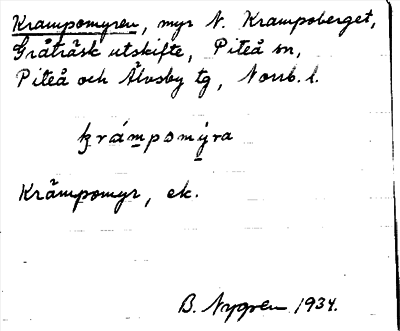 Krampomyren, myr N. Krampoberget,
Gråträsk utskifte, Piteå sn,
Piteå och Älvsby tg, Norrb. l.
krámpomy̌ra
Krämpomyr, ek.
B. Nygren 1934.